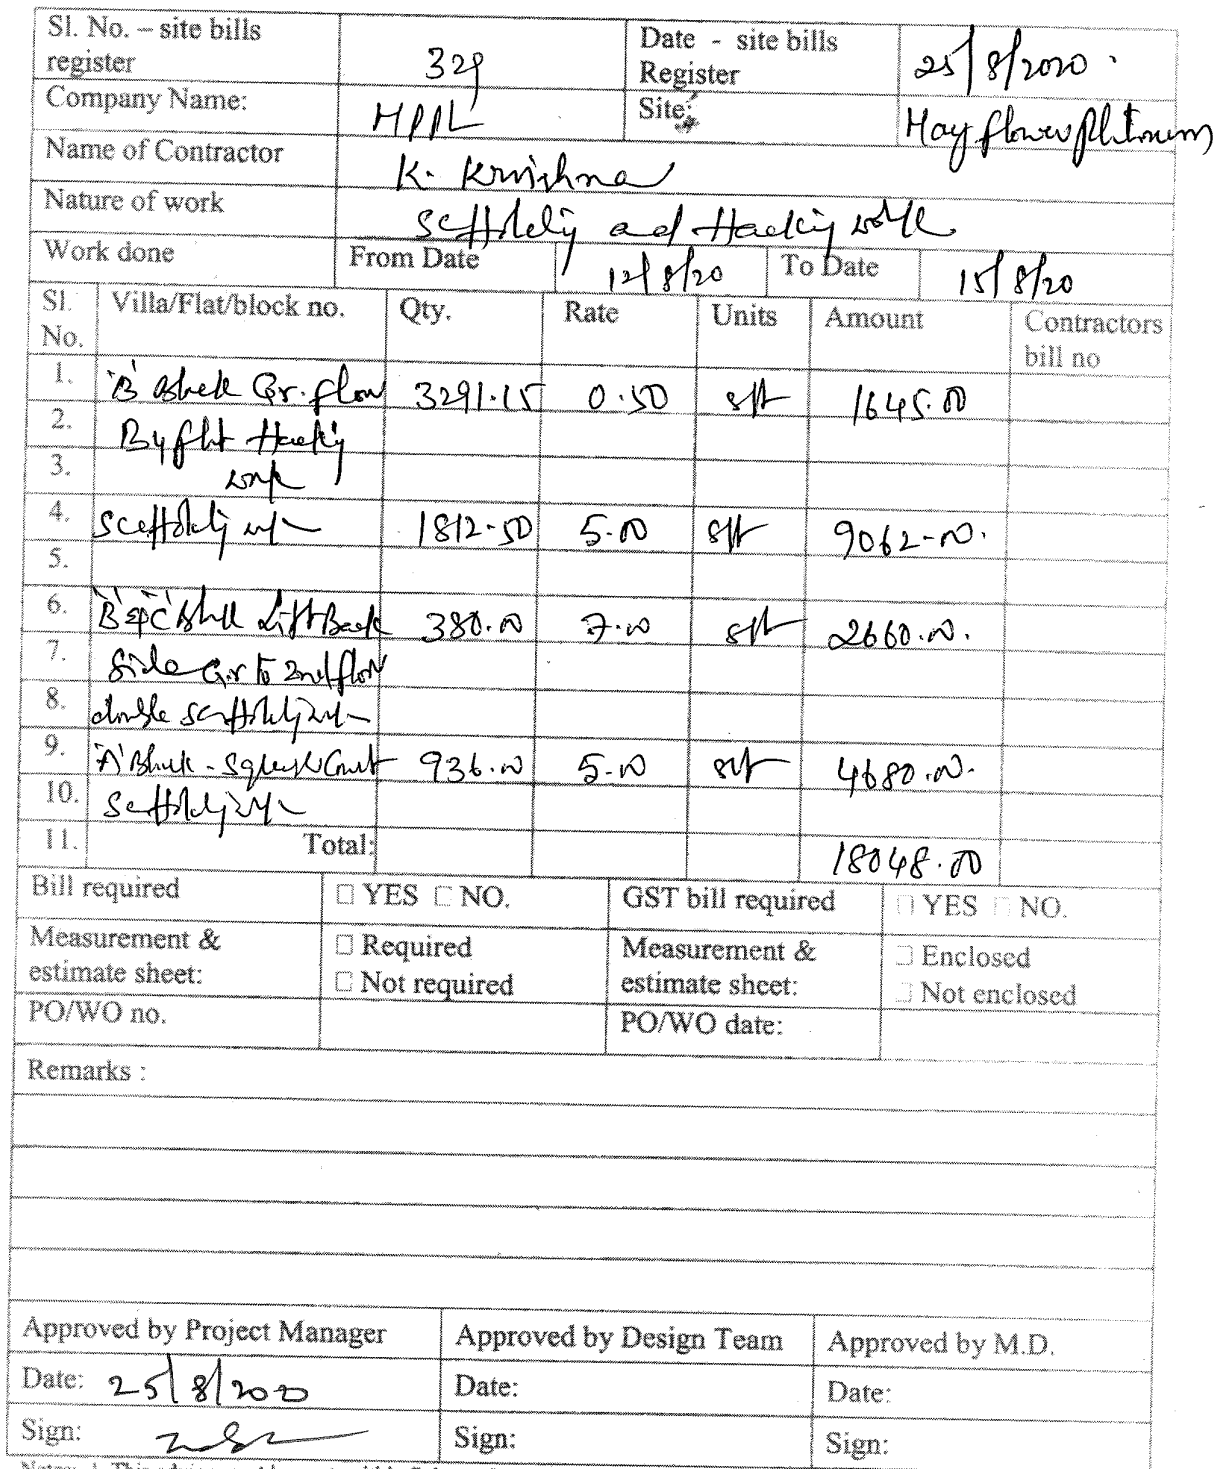 Sl. No. – site bills register 329 Date - site bills Register 25/8/2020.
Company Name: MPPL Site: May flower Platinum
Name of Contractor K. Krishna
Nature of work Scaffolding and Hacking work
Work done From Date 12/8/20 To Date 15/8/20
Sl. No. Villa/Flat/block no. Qty. Rate Units Amount Contractors bill no
1. 'B' Block Gr. floor 3291.15 0.50 sft 1645.00
2. Hacking
3. work
4. Scaffolding 1812-50 5.00 sft 9062-00.
5.
6. 'B' & 'C' Block Lift Back 380.00 7.00 sft 2660.00.
7. Side Gr to 2nd floor
8. double scaffolding
9. 'A' Block - Squash Court 936.00 5.00 sft 4680.00.
10. Scaffolding
11. Total: 18048.00
Bill required □ YES □ NO. GST bill required □ YES □ NO.
Measurement & estimate sheet: □ Required □ Not required Measurement & estimate sheet: □ Enclosed □ Not enclosed
PO/WO no. PO/WO date:
Remarks :
Approved by Project Manager Approved by Design Team Approved by M.D.
Date: 25/8/2020 Date: Date:
Sign: Sign: Sign: